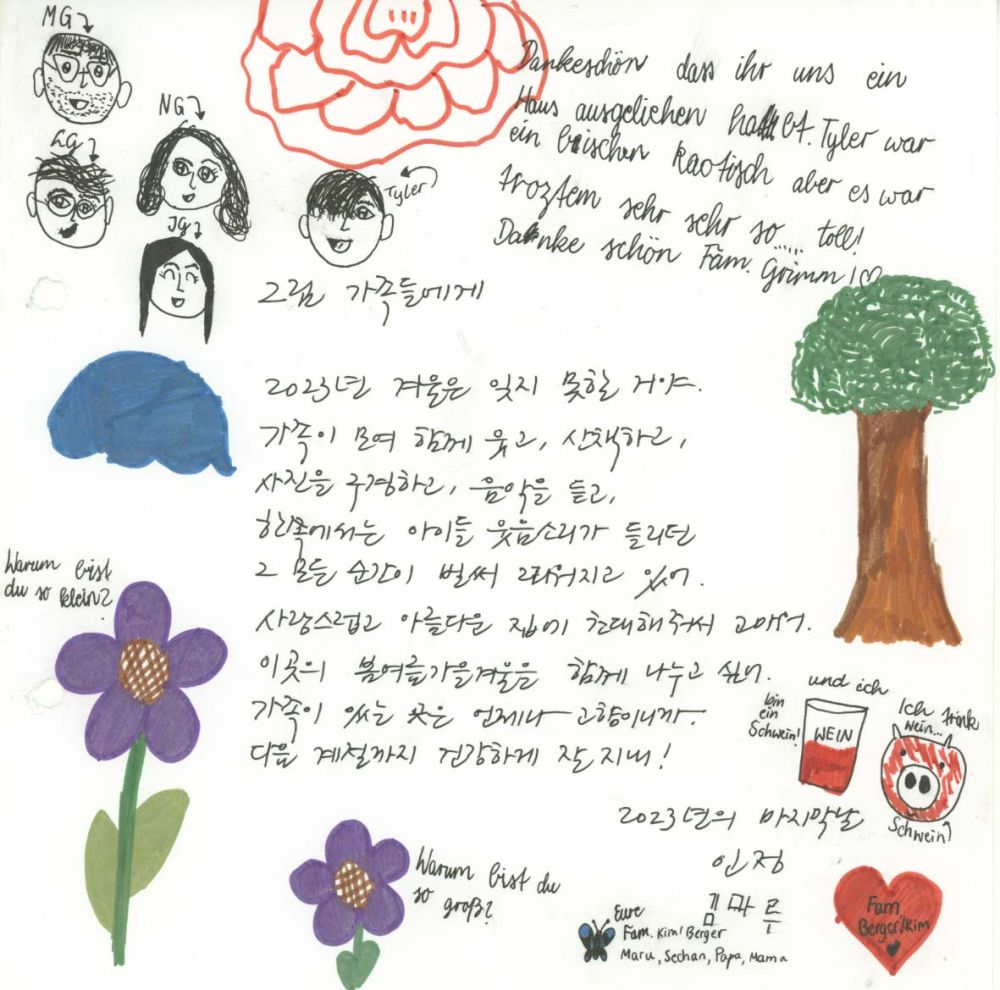 MG
LG
NG
JG
Tyler
Dankeschön dass ihr uns ein
Haus ausgeliehen habt. Tyler war
ein bisschen kaotisch aber es war
troztem sehr sehr so..... toll!
Danke schön Fam. Grimm!
그림 가족들에게
2023년 겨울은 잊지 못할 거야.
가족이 모여 함께 웃고, 산책하고,
사진을 구경하고, 음악을 듣고,
한쪽에서는 아이들 웃음소리가 들리던
그 모든 순간이 벌써 그리워지고 있어.
사랑스럽고 아름다운 집에 초대해주어서 고마워.
이곳의 봄여름가을겨울을 함께 나누고 싶어.
가족이 있는 곳은 언제나 고향이니까.
다음 계절까지 건강하게 잘 지내!
2023년의 마지막날
인정
김마루
Warum bist
du so klein?
Warum bist du
so
groß?
und ich
bin
ein
Schwein!
WEIN
Ich trink
wein...
Schwein
Eure
Fam. Kim/Berger
Maru, Sechan, Papa, Mama
Fam
Berger/Kim